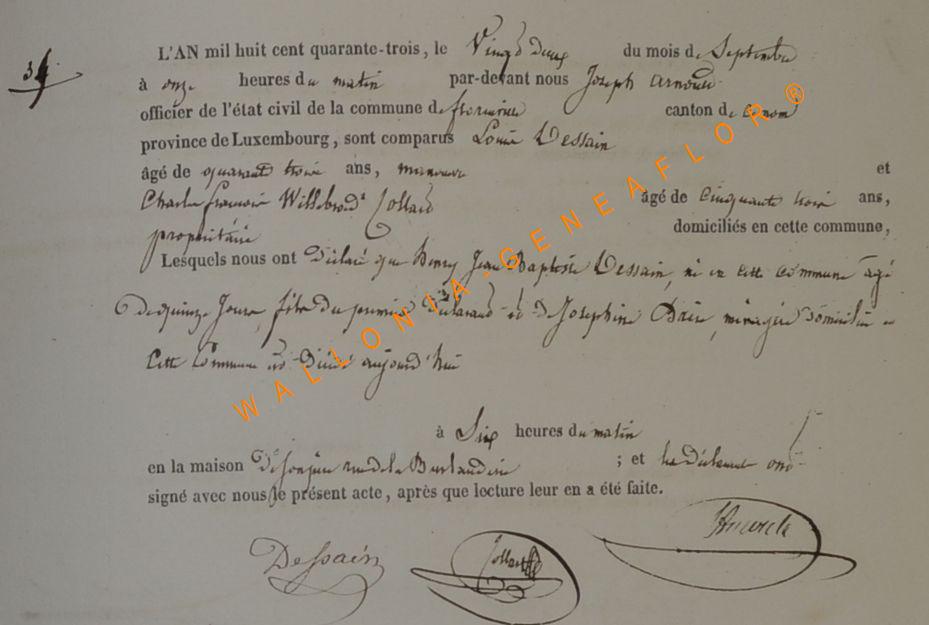 34
L'AN mil huit cent quarante-trois, le Vingt deux du mois de Septembre
à onze heures du matin par-devant nous Joseph Arnould
officier de l'état civil de la commune de florenville canton de
province de Luxembourg, sont comparus Louis Dessain
âgé de quarante trois ans, manoeuvre et
Charles francois Willibrord Collard âgé de Cinquante trois ans,
propriétaire domiciliés en cette commune,
Lesquels nous ont déclaré que Henry Jean Baptiste Dessain, né en cette commune agé
de quinze Jours, fils du premier déclarant et de Josephine ménagère domiciliée en
cette Commune est décédé aujourd'hui
à Six heures du matin
en la maison de son père rue de la ; et les déclarants ont
signé avec nous le présent acte, après que lecture leur en a été faite.
Dessain Collard
WALLONIA-GENEAFLOR®